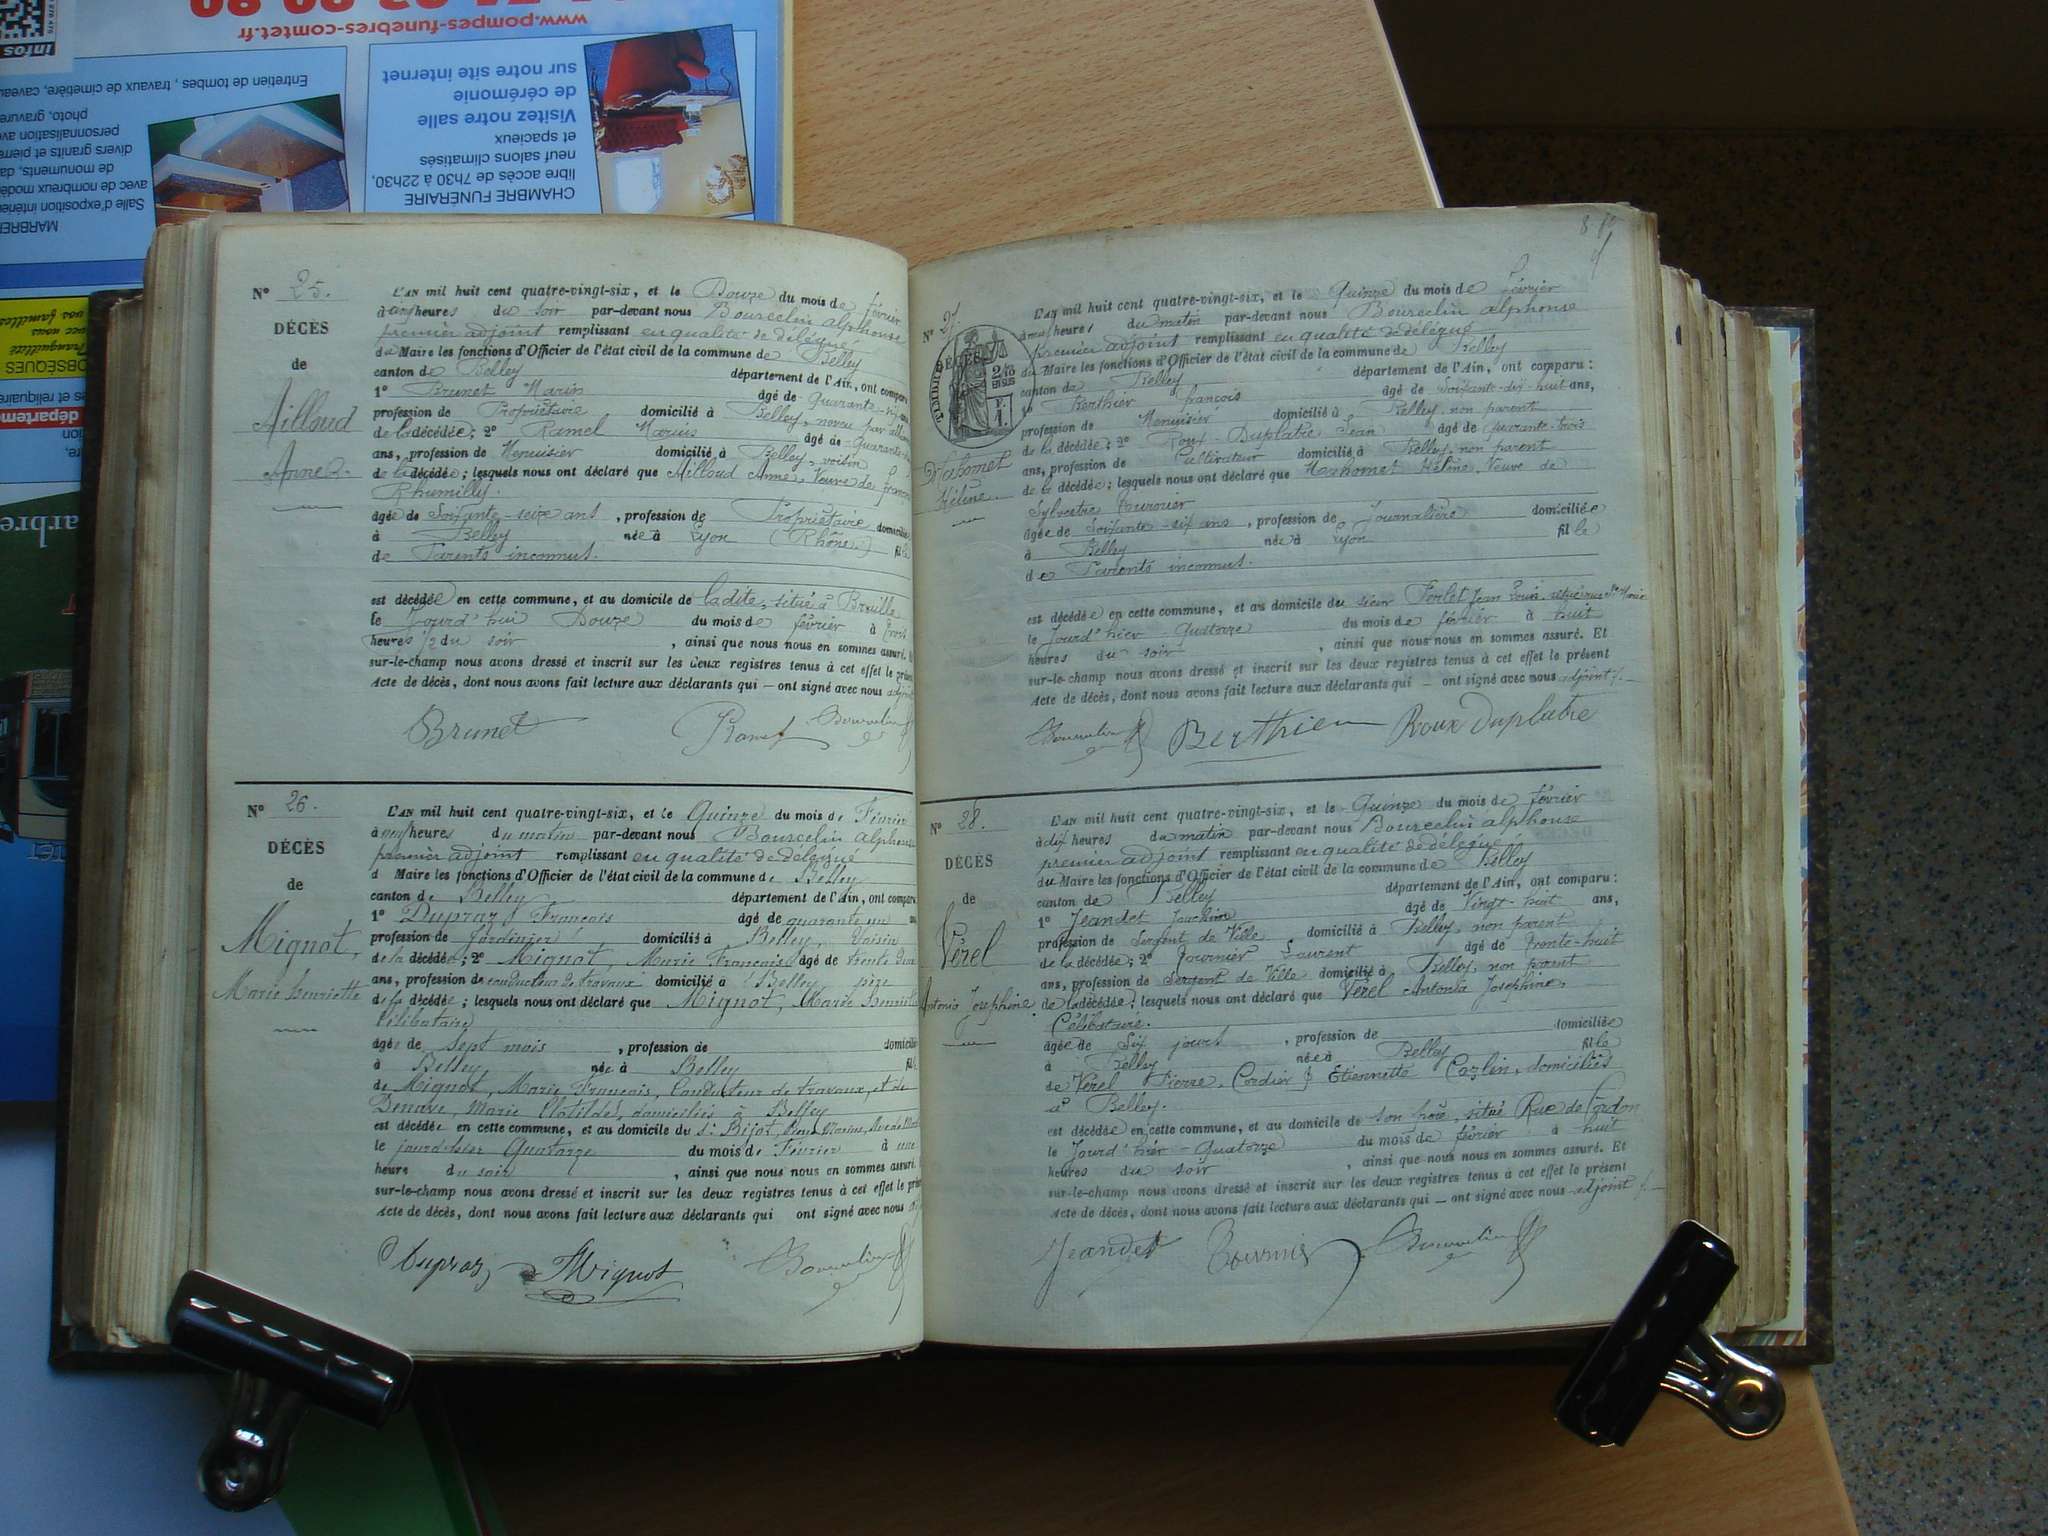 www.pompes-funebres-comtet.fr
infos
Entretien de tombes, travaux de cimetière, caveau
photo, gravure
personnalisation
divers granits et pierre
de monuments,
avec de nombreux
Salle d'exposition
MARBRE
CHAMBRE FUNÉRAIRE
libre accès de 7h30 à 22h30,
neuf salons climatisés
et spacieux
Visitez notre salle
de cérémonie
sur notre site internet
OBSÈQUES
N° 25.
DÉCÈS
de
Ailloud
Anne
L'AN mil huit cent quatre-vingt-six, et le Douze du mois de février
à heures du soir par-devant nous Bourcelin alphonse
premier adjoint remplissant en qualité de délégué
du Maire les fonctions d'Officier de l'état civil de la commune de Belley
canton de Belley département de l'Ain, ont comparu
1° Brunet Marin âgé de Quarante
profession de Propriétaire domicilié à Belley, neveu par
de la décédée; 2° Ramel Marius âgé de Quarante
ans, profession de Menuisier domicilié à Belley, voisin
de la décédée; lesquels nous ont déclaré que Ailloud Anne, Veuve de
Rhumilly.
âgée de Soixante-seize ans, profession de Propriétaire domiciliée
à Belley née à Lyon (Rhône) fille
de Parents inconnus.
est décédée en cette commune, et au domicile de ladite, situé à Braille
le Jourd'hui Douze du mois de février à trois
heures 1/2 du soir, ainsi que nous nous en sommes assuré.
sur-le-champ nous avons dressé et inscrit sur les deux registres tenus à cet effet le présent
Acte de décès, dont nous avons fait lecture aux déclarants qui — ont signé avec nous adjoint
Brunet Ramel Bourcelin
N° 26.
DÉCÈS
de
Mignot,
Marie Henriette
L'AN mil huit cent quatre-vingt-six, et le Quinze du mois de Février
à neuf heures du matin par-devant nous Bourcelin alphonse
premier adjoint remplissant en qualité de délégué
d Maire les fonctions d'Officier de l'état civil de la commune de Belley
canton de Belley département de l'Ain, ont comparu
1° Dupraz, François âgé de quarante un
profession de Jardinier domicilié à Belley, Voisin
de la décédée; 2° Mignot, Marie François âgé de trente
ans, profession de conducteur de travaux domicilié à Belley père
de la décédée; lesquels nous ont déclaré que Mignot, Marie Henriette
Célibataire
âgée de sept mois, profession de domiciliée
à Belley née à Belley
de Mignot, Marie François, Conducteur de travaux, et de
Denave, Marie Clotilde, domiciliés à Belley
est décédée en cette commune, et au domicile du Sr Bijot,
le jourd'hier Quatorze du mois de Février à une
heure du soir, ainsi que nous nous en sommes assuré.
sur-le-champ nous avons dressé et inscrit sur les deux registres tenus à cet effet le présent
Acte de décès, dont nous avons fait lecture aux déclarants qui ont signé avec nous
Dupraz Mignot Bourcelin
N° 27.
DÉCÈS
Mahomet
Hélène
L'AN mil huit cent quatre-vingt-six, et le Quinze du mois de février
à neuf heures du matin par-devant nous Bourcelin alphonse
premier adjoint remplissant en qualité de délégué
du Maire les fonctions d'Officier de l'état civil de la commune de Belley
canton de Belley département de l'Ain, ont comparu :
1° Berthier françois âgé de Soixante-dix-huit ans,
profession de Menuisier domicilié à Belley, non parent
de la décédée; 2° Roux-Duplatre Jean âgé de quarante-trois
ans, profession de Cultivateur domicilié à Belley, non parent
de la décédée; lesquels nous ont déclaré que Mahomet Hélène, Veuve de
Sylvestre
âgée de Soixante-six ans, profession de Journalière domiciliée
à Belley née à Lyon fille
de Parents inconnus.
est décédée en cette commune, et au domicile du sieur Ferlet Jean Louis,
le Jourd'hier Quatorze du mois de février à huit
heures du soir, ainsi que nous nous en sommes assuré. Et
sur-le-champ nous avons dressé et inscrit sur les deux registres tenus à cet effet le présent
Acte de décès, dont nous avons fait lecture aux déclarants qui — ont signé avec nous adjoint
Bourcelin Berthier Roux Duplatre
N° 28.
DÉCÈS
de
Vérel
Antonia Josephine
L'AN mil huit cent quatre-vingt-six, et le Quinze du mois de février
à dix heures du matin par-devant nous Bourcelin alphonse
premier adjoint remplissant en qualité de délégué
du Maire les fonctions d'Officier de l'état civil de la commune de Belley
canton de Belley département de l'Ain, ont comparu :
1° Jeandet Joachim âgé de Vingt-huit ans,
profession de Sergent de Ville domicilié à Belley, non parent
de la décédée; 2° Fournier Laurent âgé de trente-huit
ans, profession de Sergent de Ville domicilié à Belley, non parent
de la décédée; lesquels nous ont déclaré que Vérel Antonia Joséphine,
Célibataire.
âgée de Six jours, profession de domiciliée
à Belley née à Belley fille
de Vérel Pierre, Cordier & Etiennette Carlin, domiciliés
à Belley.
est décédée en cette commune, et au domicile de son père, situé Rue de
le Jourd'hier Quatorze du mois de février à huit
heures du soir, ainsi que nous nous en sommes assuré. Et
sur-le-champ nous avons dressé et inscrit sur les deux registres tenus à cet effet le présent
Acte de décès, dont nous avons fait lecture aux déclarants qui — ont signé avec nous adjoint
Jeandet Fournier Bourcelin